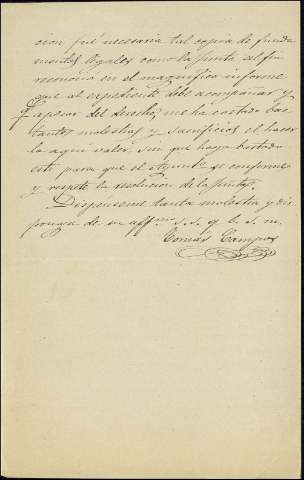 cion fué necesaria tal copia de funda
mentos legales como la Junta al fin
menciono en el magnifico informe
que al expediente debe acompañar y
apesar del derecho, me ha costado bas
tantes molestias y sacrificios el hacer
lo aqui valer, sin que haya bastado
esto para que el Ayunto se conforme
y respete la resolucion de la Junta.
Dispenseme tanta molestia y dis
ponga de su affmo s. s. q. b. s. m.
Tomás Campos